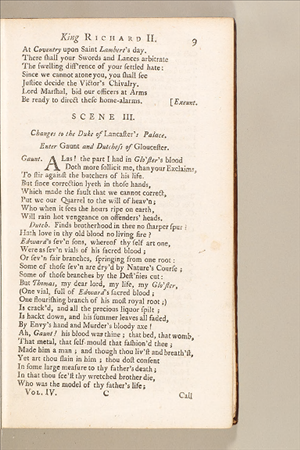 King RICHARD II. 9
At Coventry upon Saint Lambert's day.
There shall your Swords and Lances arbitrate
The swelling diff'rence of your settled hate:
Since we cannot atone you, you shall see
Justice decide the Victor's Chivalry.
Lord Marshal, bid our officers at Arms
Be ready to direct these home-alarms. [Exeunt.
SCENE III.
Changes to the Duke of Lancaster's Palace.
Enter Gaunt and Dutchess of Gloucester.
Gaunt. ALas! the part I had in Glo'ster's blood
Doth more sollicit me, than your Exclaims,
To stir against the butchers of his life.
But since correction lyeth in those hands,
Which made the fault that we cannot correct,
Put we our Quarrel to the will of heav'n;
Who when it sees the hours ripe on earth,
Will rain hot vengeance on offenders' heads.
Dutch. Finds brotherhood in thee no sharper spur?
Hath love in thy old blood no living fire?
Edward's sev'n sons, whereof thy self art one,
Were as sev'n vials of his sacred blood;
Or sev'n fair branches, springing from one root:
Some of those sev'n are dry'd by Nature's Course;
Some of those branches by the Dest'nies cut:
But Thomas, my dear lord, my life, my Glo'ster,
(One vial, full of Edward's sacred blood;
One flourishing branch of his most royal root;)
Is crack'd, and all the precious liquor spilt;
Is hackt down, and his summer leaves all faded,
By Envy's hand and Murder's bloody axe!
Ah, Gaunt! his blood was thine; that bed, that womb,
That metal, that self-mould that fashion'd thee,
Made him a man; and though thou liv'st and breath'st,
Yet art thou slain in him; thou dost consent
In some large measure to thy father's death;
In that thou see'st thy wretched brother die,
Who was the model of thy father's life;
VOL. IV. C Call